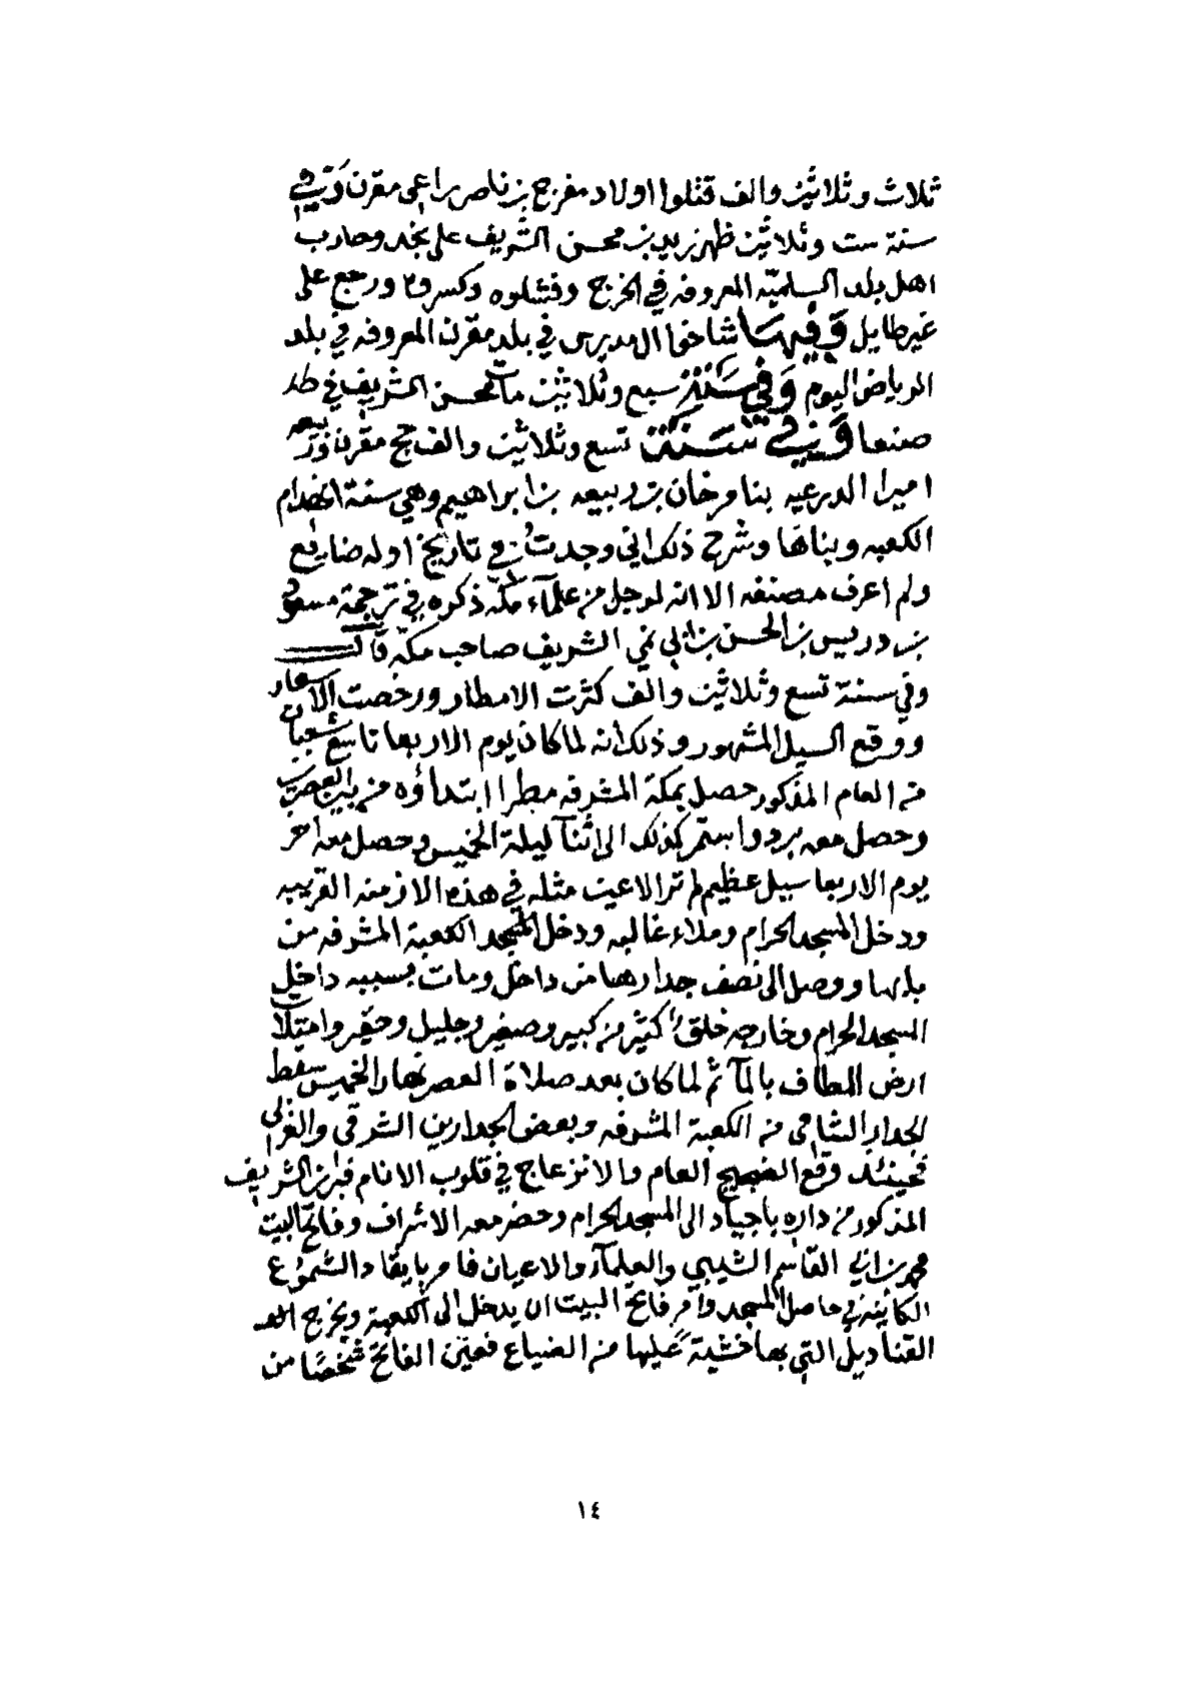 ثلاث وثلاثين والف قتلوا اولاد مفرج بن ناصر راعي مقرن وفي
سنة ست وثلاثين ظهر زيد بن محسن الشريف على نجد وحارب
اهل بلد السلميه المعروفه في الخرج وفشلوه وكسروه ورجع على
غير طايل وفيها شاخوا المديرس في بلد مقرن المعروفه في بلد
الرياض اليوم وفي سنة سبع وثلاثين مات محسن الشريف في
صنعا وفي سنة تسع وثلاثين والف حج مقرن وربيعه
اميرا الدرعيه بنا مرخان بن ربيعه بن ابراهيم وهي سنة انهدام
الكعبه وبناها وشرح ذلك اني وجدت في تاريخ اوله ضايع
ولم اعرف مصنفه الا انه لرجل من علمآء مكة ذكره في ترجمة مسعود
بن دريس بن الحسن بن ابي نمي الشريف صاحب مكة قال
وفي سنة تسع وثلاثين والف كثرت الامطار ورخصت الاسعار
ووقع السيل المشهور وذلك انه لما كان يوم الاربعا تاسع شعبان
من العام المذكور حصل بمكة المشرفه مطرا ابتداؤه من العصر
وحصل معه برد واستمر كذلك الى اثنآ ليلة الخميس وحصل معه اخر
يوم الاربعا سيل عظيم لم تر الاعين مثله في هذه الازمنه القريبه
ودخل المسجد الحرام وملاء غالبه ودخل المسجد الكعبة المشرفه من
بابها ووصل الى نصف جدارها من داخل ومات بسببه داخل
المسجد الحرام وخارجه خلق كثير من كبير وصغير وجليل وحقير وامتلأ
ارض المطاف بالمآ ثم لما كان بعد صلاة العصر نهار الخميس سقط
الجدار الشامي من الكعبة المشرفه وبعض الجدارين الشرقي والغربي
فحينئذ وقع الضجيج العام والانزعاج في قلوب الانام فبرز الشريف
المذكور من داره باجياد الى المسجد الحرام وحضر معه الاشراف وفاتح البيت
محمد بن ابي القاسم الشيبي والعلمآء والاعيان فامر بايقاد الشموع
الكائنه في حاصل المسجد وامر فاتح البيت ان يدخل الى الكعبة ويخرج
القناديل التي بها خشية عليها من الضياع فعين الفاتح شخصا من
١٤